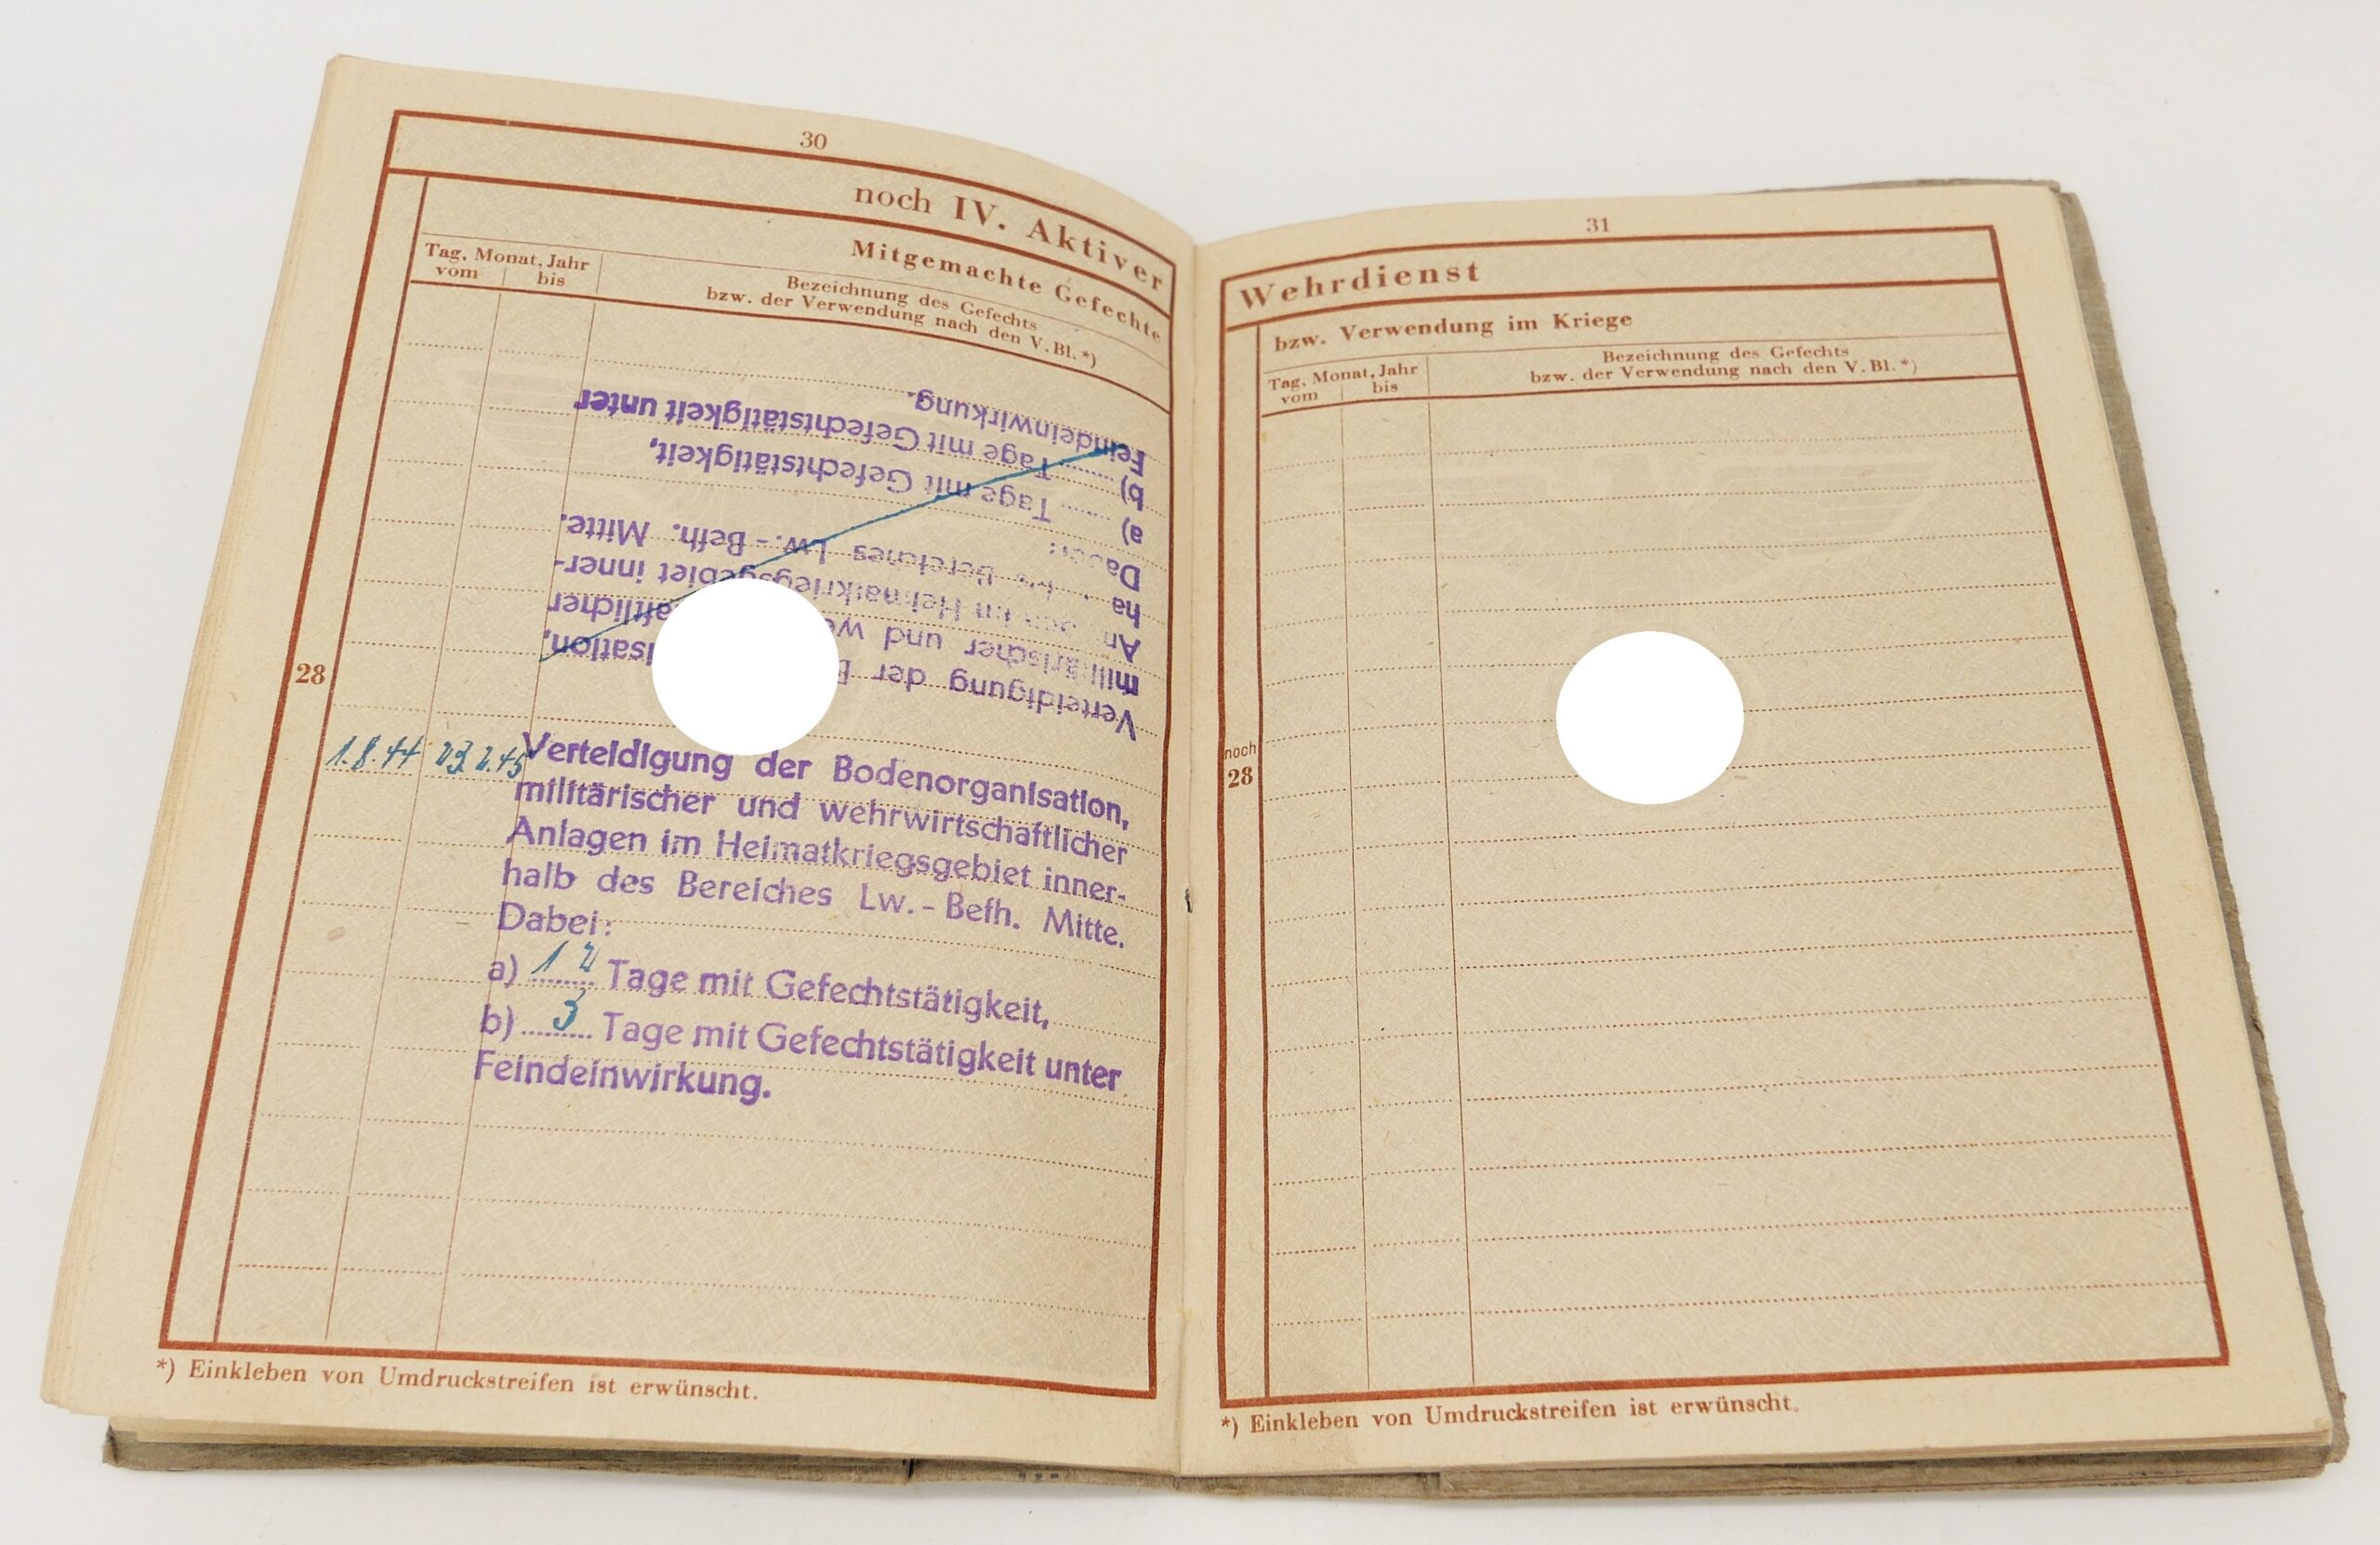 30
noch IV. Aktiver
Mitgemachte Gefechte
Tag, Monat, Jahr
vom bis
Bezeichnung des Gefechts
bzw. der Verwendung nach den V. Bl. *)
Verteidigung der
isation,
militärischer und
aftlicher
im Heimatkriegsgebiet inner-
ha
Bereiches Lw. - Befh. Mitte.
Dabei:
a) ........ Tage mit Gefechtstätigkeit,
b) ........ Tage mit Gefechtstätigkeit unter
Feindeinwirkung.
28
1.8.44
Verteidigung der Bodenorganisation,
militärischer und wehrwirtschaftlicher
Anlagen im Heimatkriegsgebiet inner-
halb des Bereiches Lw. - Befh. Mitte.
Dabei:
a) 12 Tage mit Gefechtstätigkeit,
b) 3 Tage mit Gefechtstätigkeit unter
Feindeinwirkung.
*) Einkleben von Umdruckstreifen ist erwünscht.
31
Wehrdienst
bzw. Verwendung im Kriege
Tag, Monat, Jahr
vom bis
Bezeichnung des Gefechts
bzw. der Verwendung nach den V. Bl. *)
noch
28
*) Einkleben von Umdruckstreifen ist erwünscht.